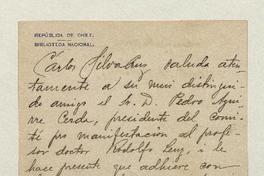 REPÚBLICA DE CHILE.
BIBLIOTECA NACIONAL.
Cárlos Silva Cruz saluda aten-
tamente a su mui distingui-
do amigo el Sr. D. Pedro Agui-
rre Cerda, presidente del comi-
té pro manifestación al profe-
sor doctor Rodolfo Lenz, i le
hace presente que adhiere con